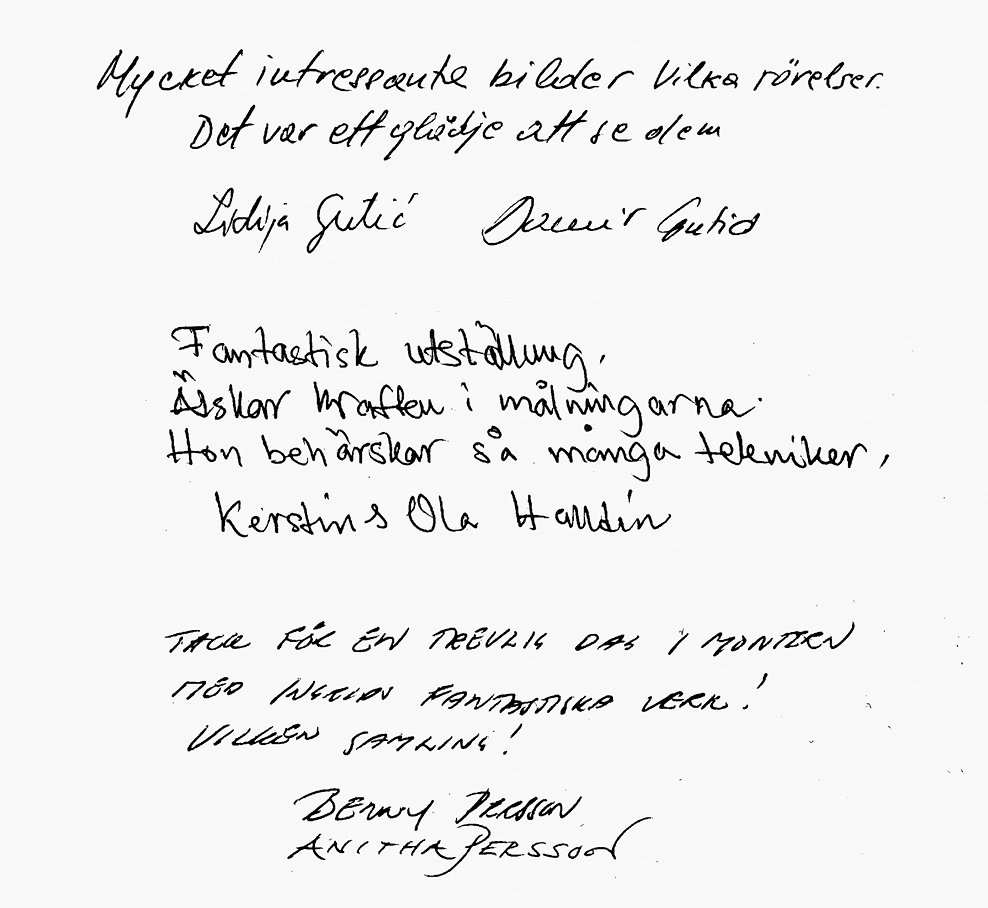 Mycket intressante bilder Vilka rörelser.
Det var ett glädje att se dem
Lidija Gutić Damir Gutić
Fantastisk utställning.
Älskar kraften i målningarna.
Hon behärskar så många tekniker.
Kerstin s Ola
TACK FÖR EN TREVLIG DAG I MONTERN
MED FANTASTISKA VERK!
VILKEN SAMLING!
BENNY PERSSON
ANITHA PERSSON